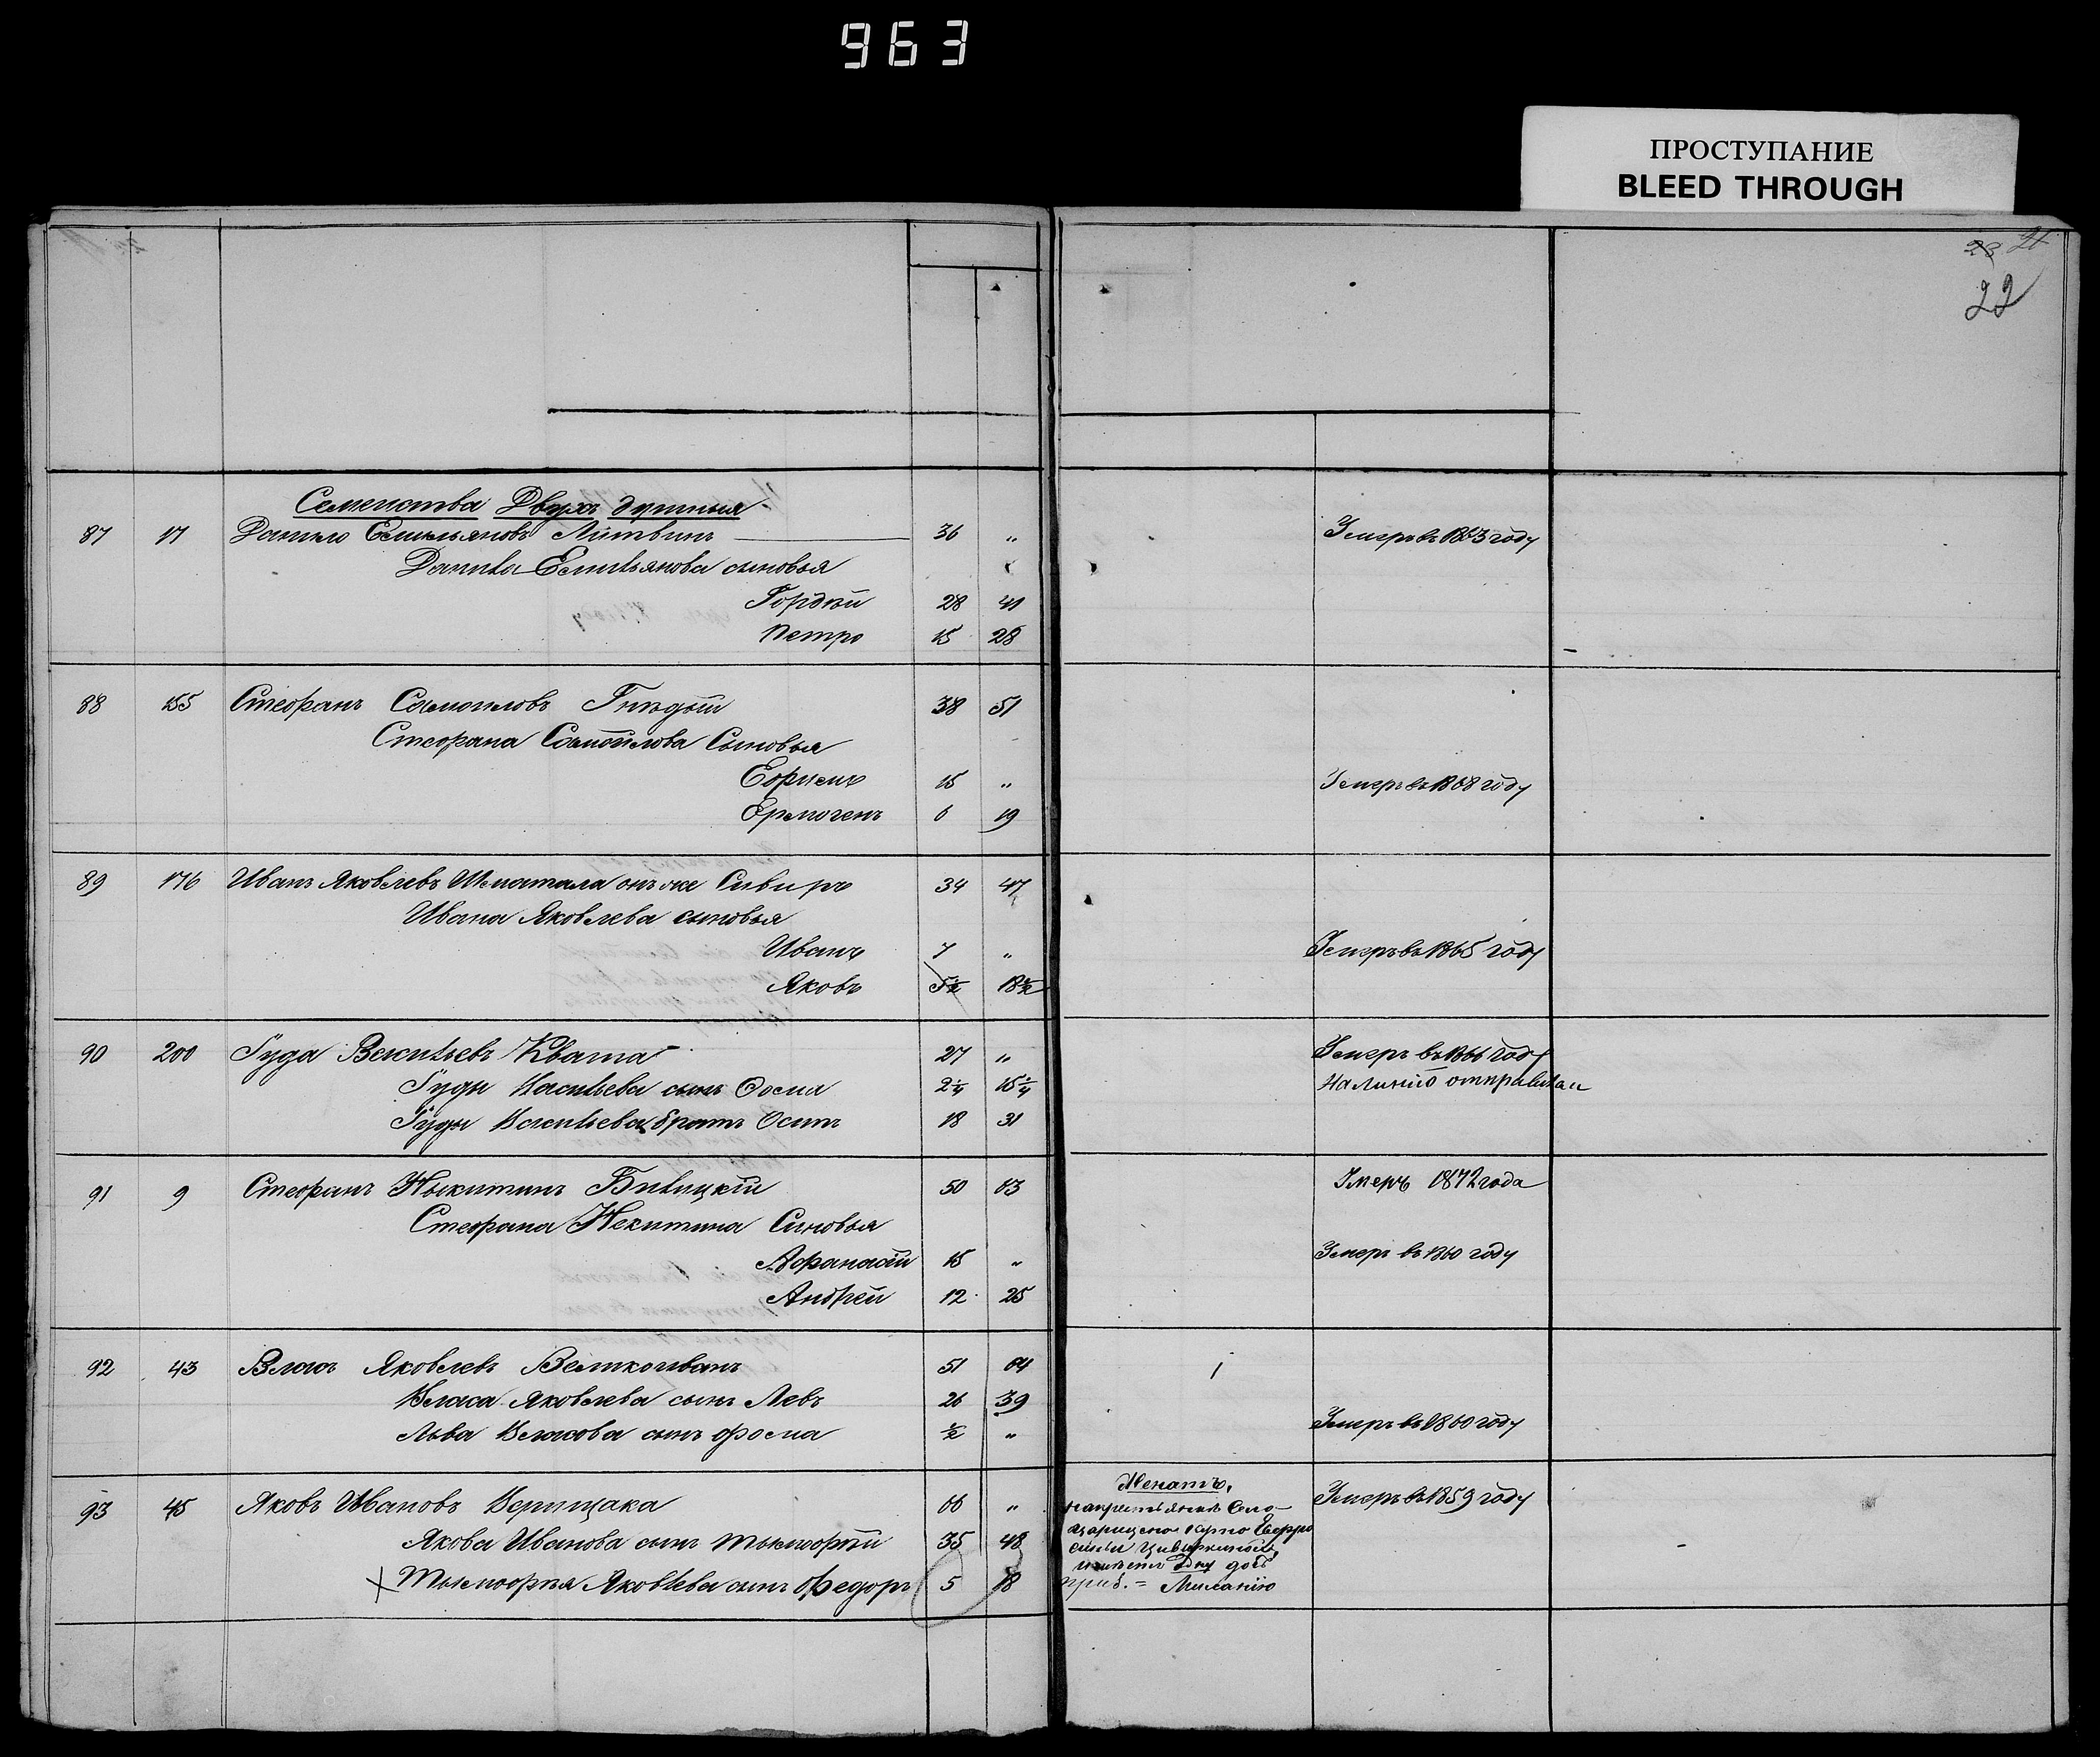 963
ПРОСТУПАНИЕ
BLEED THROUGH
23 21
22
Семейства Двухъ душныя
87 17 Данило Емильяновъ Литвинъ 36 „ Умеръ въ 1863 году
Данила Емильянова сыновья
Гордѣй 28 41
Петро 15 28
88 155 Стефанъ Самоиловъ Гнѣдый 38 51
Стефана Самойлова Сыновья
Ефимъ 15 „ Умеръ въ 1868 году
Ермогенъ 6 19
89 176 Иванъ Яковлевъ Шматала онъ же Сивиръ 34 47
Ивана Яковлева сыновья
Иванъ 7 „ Умеръ въ 1865 году
Яковъ 5½ 18½
90 200 Гуда Васильевъ Квата 27 „ Умеръ въ 1866 году
Гуды Васильева сынъ Фома 2¼ 15¼ На Линію отправился
Гуды Васильева братъ Осипъ 18 31
91 9 Стефанъ Ныкитинъ Билицкій 50 63 Умеръ 1872 года
Стефана Некитина Синовья
Афанасій 15 „ Умеръ въ 1860 году
Андрей 12 25
92 43 Власъ Яковлевъ Великоиванъ 51 64
Власа Яковлева сынъ Левъ 26 39
Льва Власова сынъ Фома ½ „ Умеръ въ 1860 году
93 45 Яковъ Ивановъ Верещака 66 „ Умеръ въ 1859 году
Якова Иванова сынъ Тымофѣй 35 48
Тымофѣя Яковлева сынъ Федоръ 5 18
Женатъ,
на крестьянкѣ Село
имѣетъ Дву дочъ
приб. = Миланію